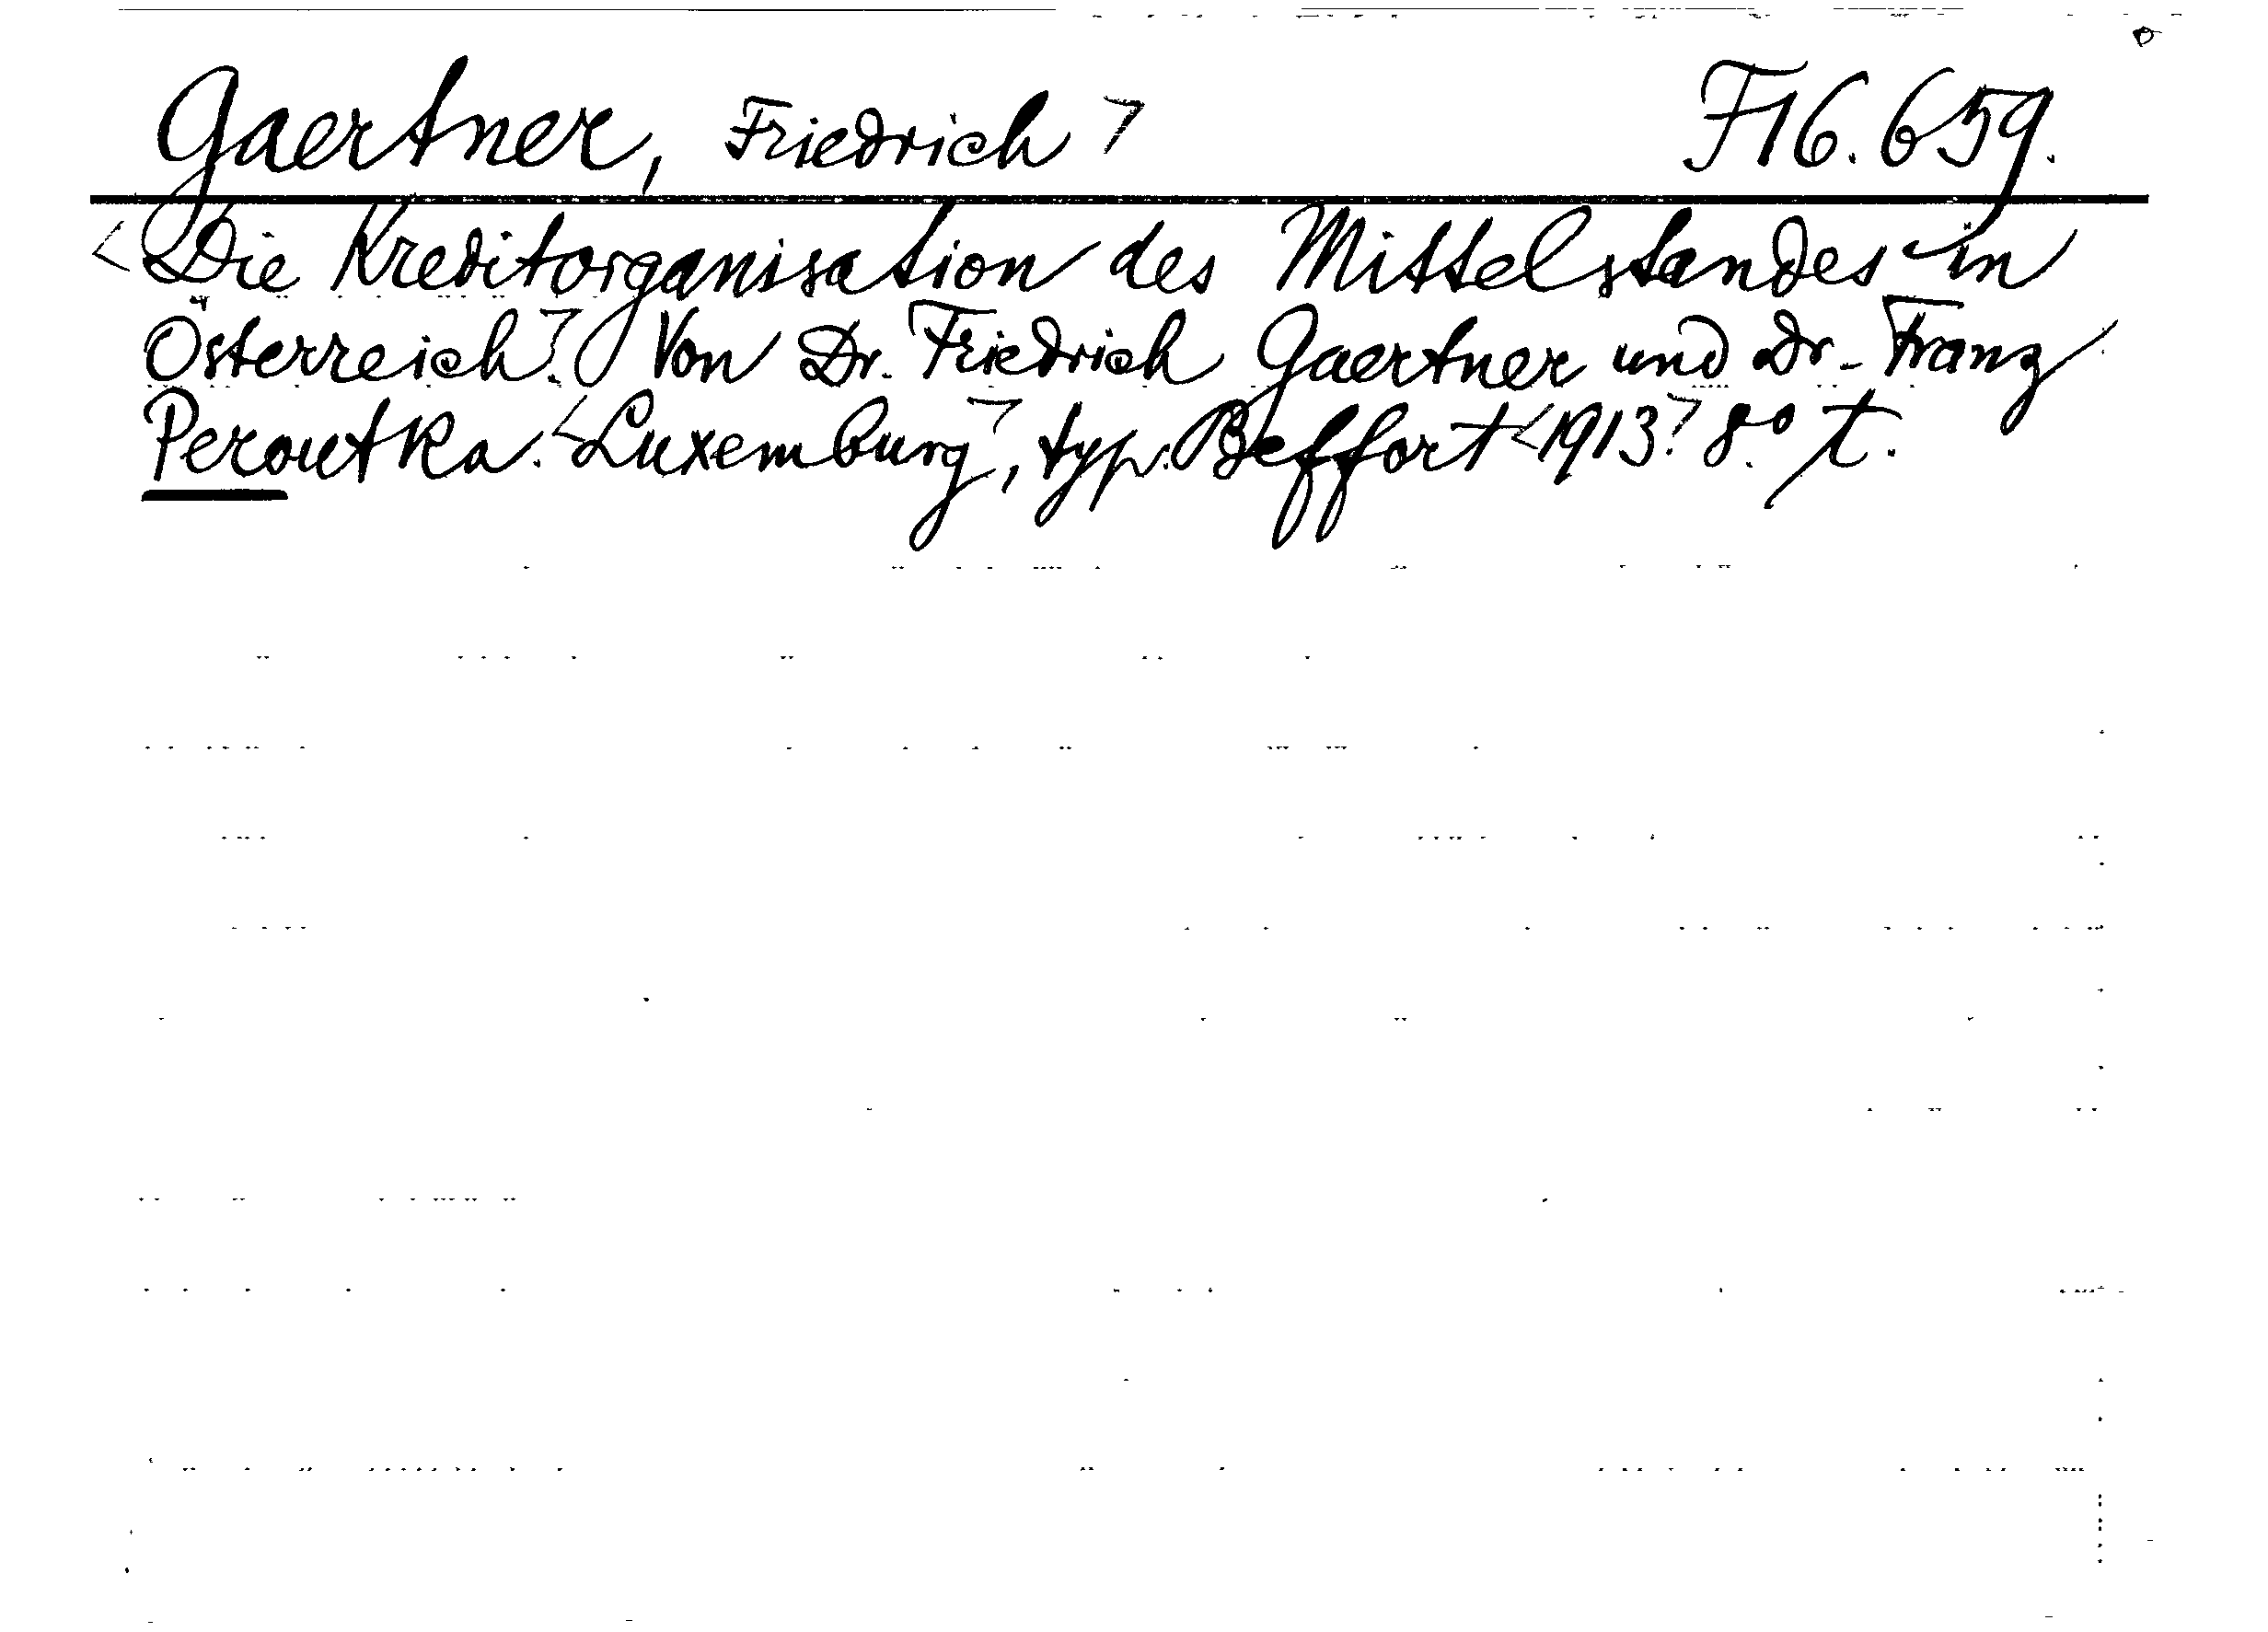 Gaertner, Friedrich > F16.659.
<Die Kreditorganisation des Mittelstandes in
Österreich>. Von Dr. Friedrich Gaertner und Dr. Franz
Peroutka. <Luxemburg>, typ. Beffort <1913>. 8.° t.